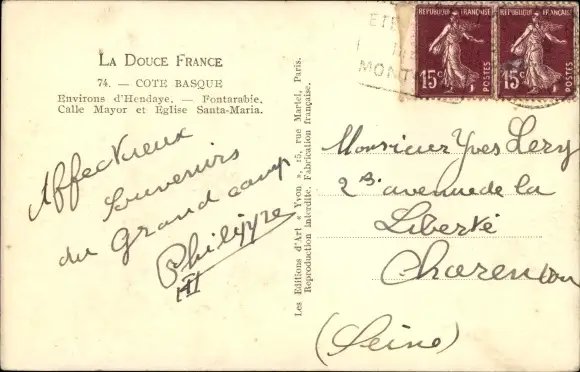 LA DOUCE FRANCE
74. — COTE BASQUE
Environs d'Hendaye. — Fontarabie.
Calle Mayor et Eglise Santa-Maria.
Affectueux
Souvenirs
du Grand camp
Philippe
Les Editions d'Art « Yvon », 15, rue Martel, Paris.
Reproduction interdite. Fabrication française.
ETE
MONT
REPUBLIQUE FRANÇAISE
15c
POSTES
REPUBLIQUE FRANÇAISE
15c
POSTES
Monsieur Yves Lery
2 Bis avenue de la
Liberté
Charenton
(Seine)